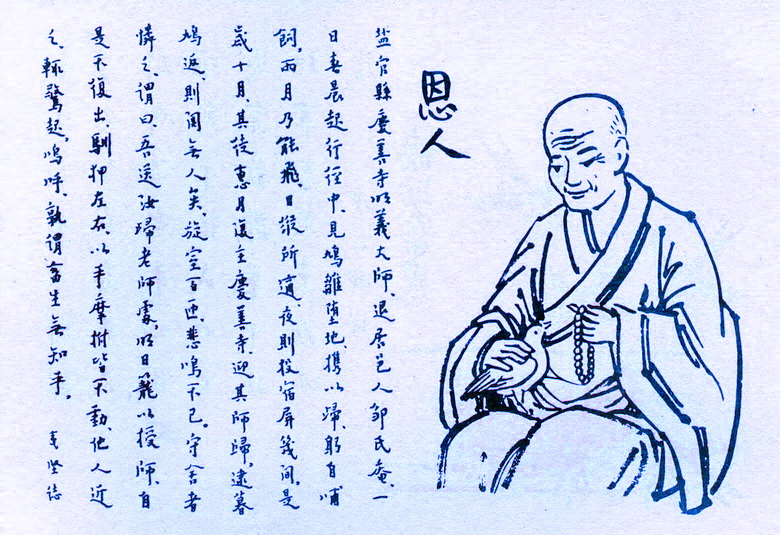 恩人
盐官縣慶善寺明義大師、退居邑人鄒氏庵、一
日春晨起行徑中、見鳩雛墮地、攜以歸、躬自哺
飼、兩月乃能飛、日縱所適、夜則投宿屏幾間。是
歲十月、其徒惠月復主慶善寺、迎其師歸。逮暮
鳩返、則闃無人矣。旋室百匝、悲鳴不已。守舍者
憐之、謂曰、吾送汝歸老師處。明日籠以授師、自
是不復出、馴狎左右、以手摩拊皆不動、他人近
之、輒驚起。嗚呼、孰謂畜生無知乎。